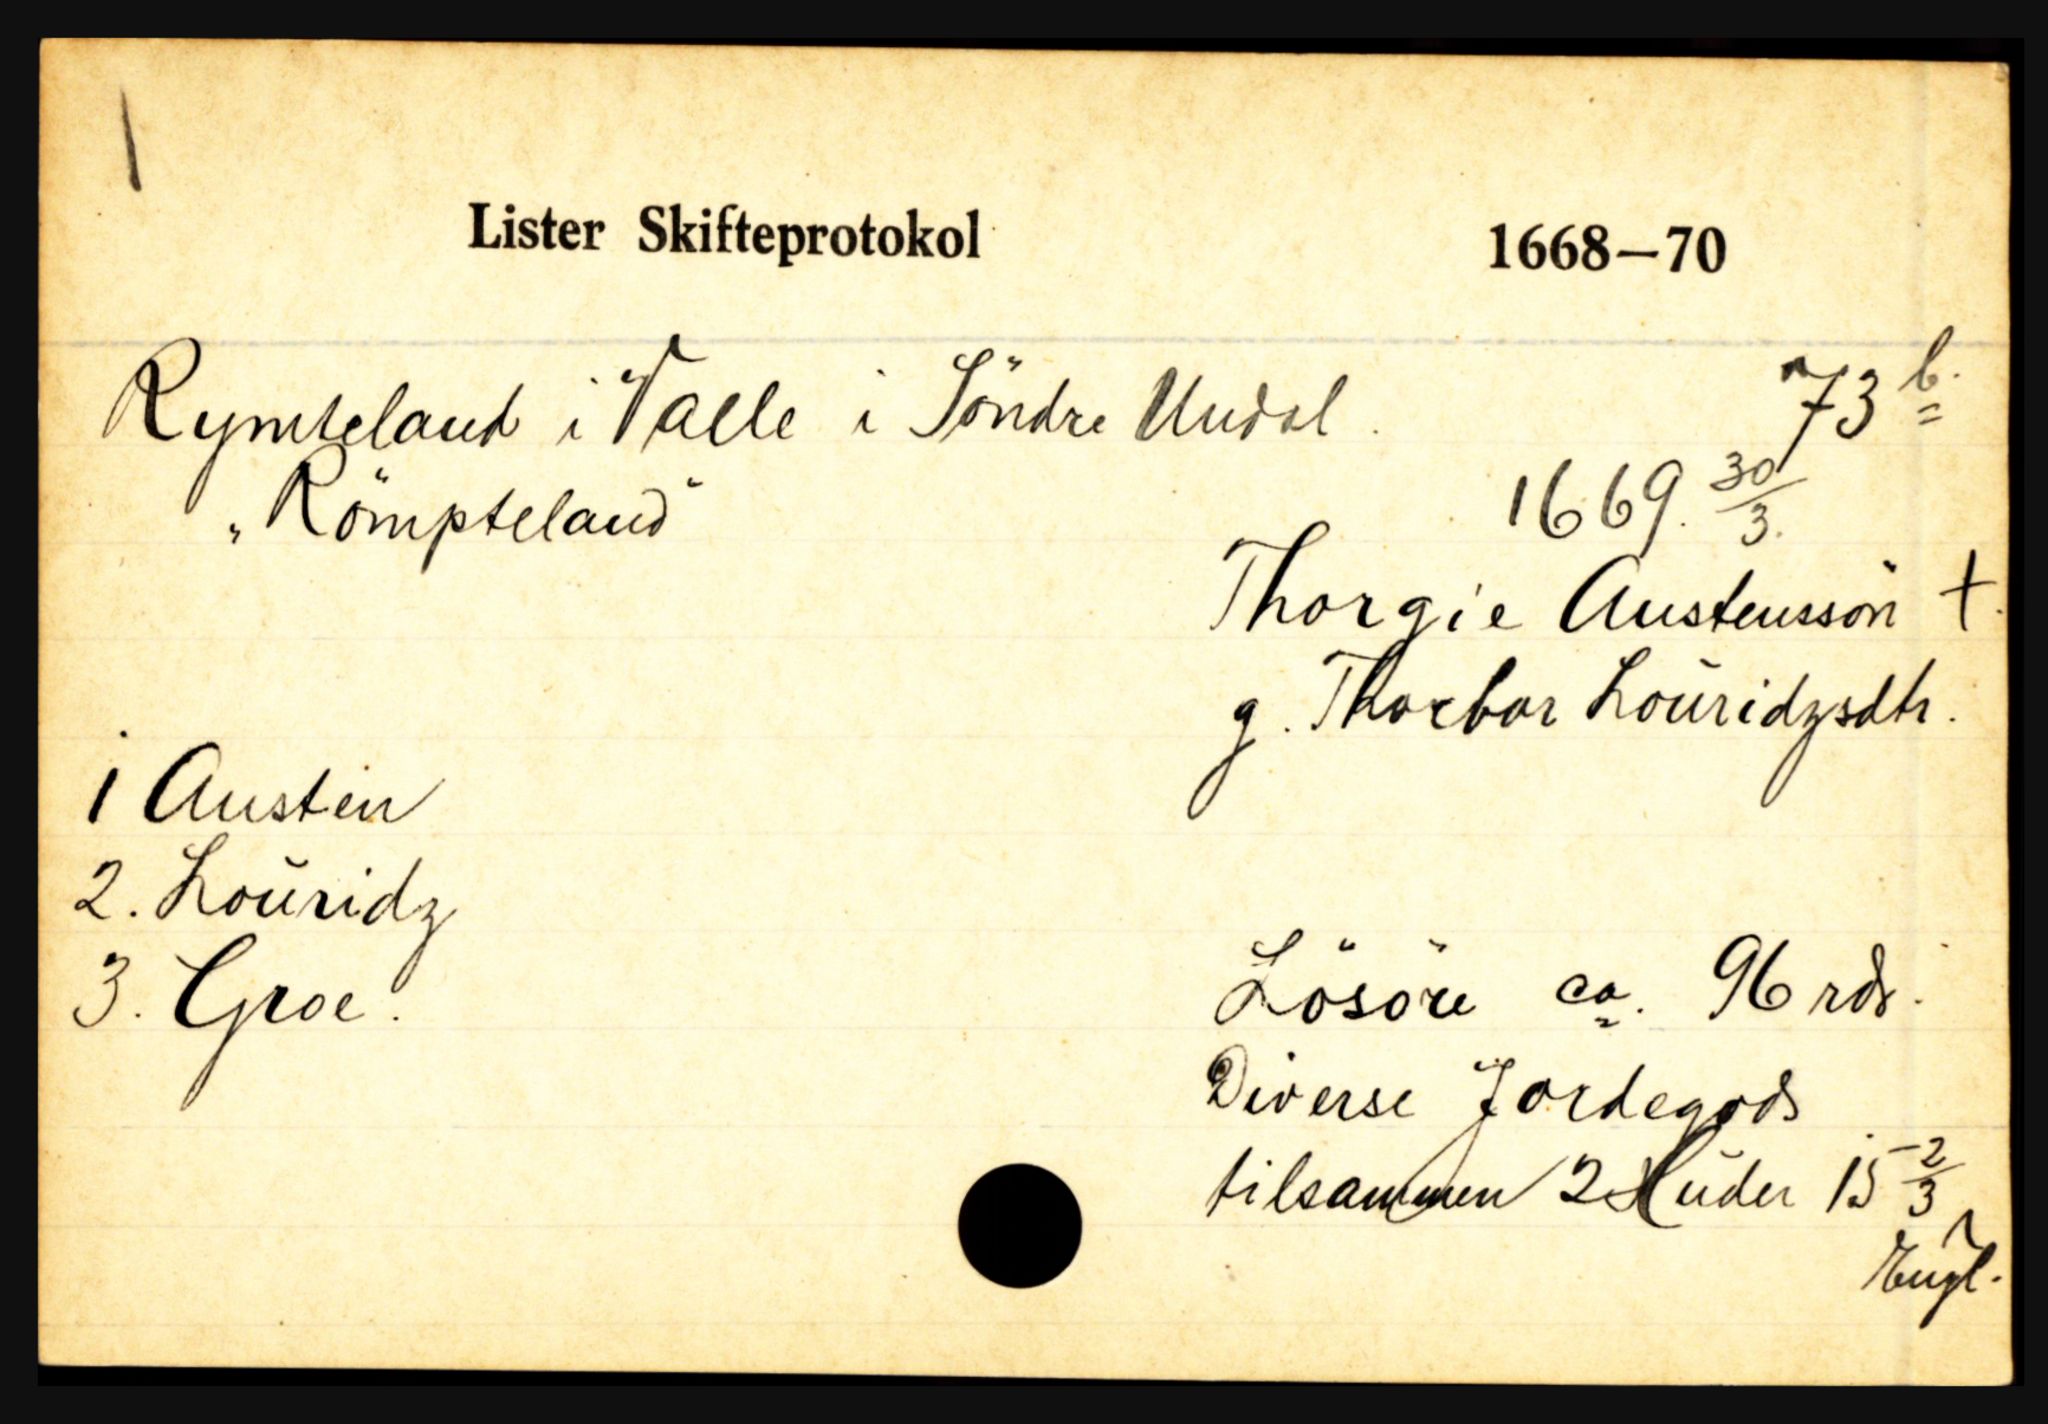 1
Lister Skifteprotokol 1668–70
Rymteland i Valle i Söndre Undal. 73 b.
"Römpteland" 1669. 30/3.
Thorgie Austensson †.
g. Thorbor Louridzsdtr.
1 Austen
2. Louridz
3. Groe.
Lösöre ca. 96 rdr.
Diverse Jordegods
tilsammen 2 Huder 15 2/3
Engl.